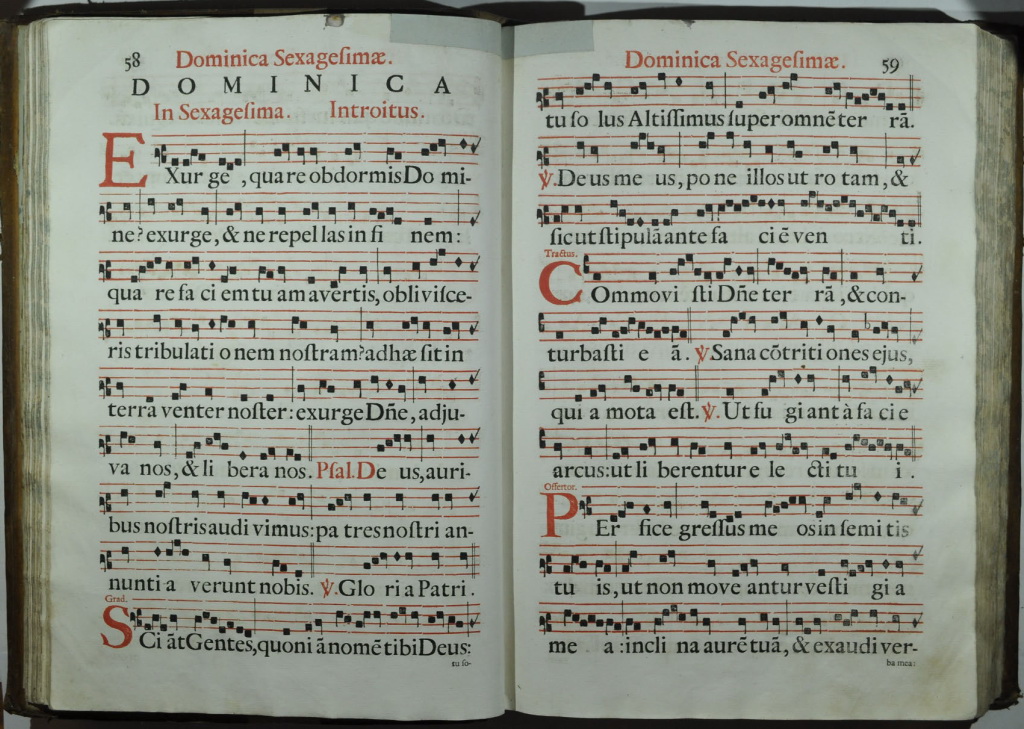 58 Dominica Sexageſimæ.
DOMINICA
In Sexageſima. Introitus.
EXur ge , qua re obdormis Do mi-
ne? exurge, & ne repel las in fi nem:
qua re fa ci em tu am avertis, obliviſce-
ris tribulati o nem noſtram? adhæ ſit in
terra venter noſter: exurge Dñe, adju-
va nos, & li bera nos. Pſal. De us, auri-
bus noſtris audi vimus: pa tres noſtri an-
nunti a verunt nobis. ℣. Glo ri a Patri.
Grad.
SCi ãt Gentes, quoni ã nomẽ tibi Deus:
tu ſo-
Dominica Sexageſimæ. 59
tu ſo lus Altiſſimus ſuper omnẽ ter rã.
℣. De us me us, po ne illos ut ro tam, &
ſicut ſtipulã ante fa ci ẽ ven ti.
Tractus.
COmmovi ſti Dñe ter rã, & con-
turbaſti e ã. ℣ Sana cõtriti ones ejus,
qui a mota eſt. ℣. Ut fu gi ant à fa ci e
arcus: ut li berentur e le cti tu i.
Offertor.
PEr fice greſſus me os in ſemi tis
tu is, ut non move antur veſti gi a
me a: incli na aurẽ tuã, & exaudi ver-
ba mea: